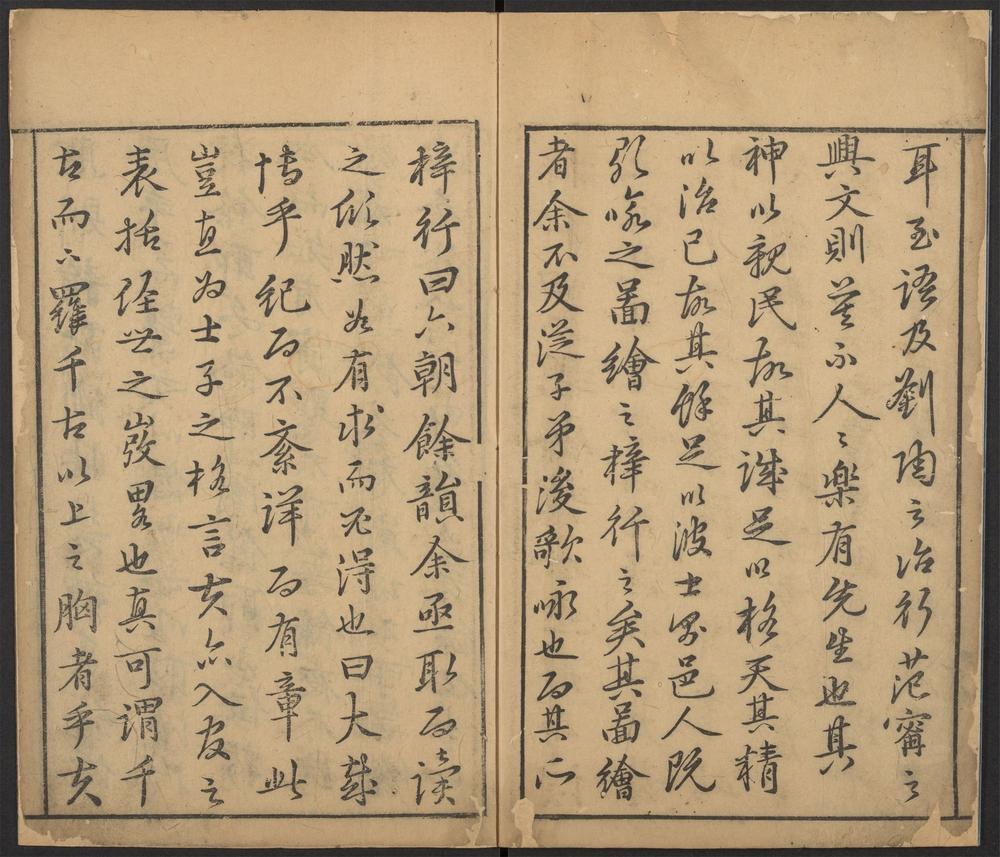 耳至語及劉陶之治行范甯之
興文則莫不人〻樂有先生也其
神以親民故其誠足以格天其精
以治己故其餘足以波士男邑人既
歌咏之啚繪之梓行之矣其啚繪
者余不及從子弟後歌咏也而其所
梓行曰六朝餘韻余亟取而讀
之恍然如有求而不得也曰大哉
博乎紀而不紊詳而有章此
豈直為士子之格言夫亦入官之
表括經世之嚴畧也真可謂千
古而下羅千古以上之胸者乎夫